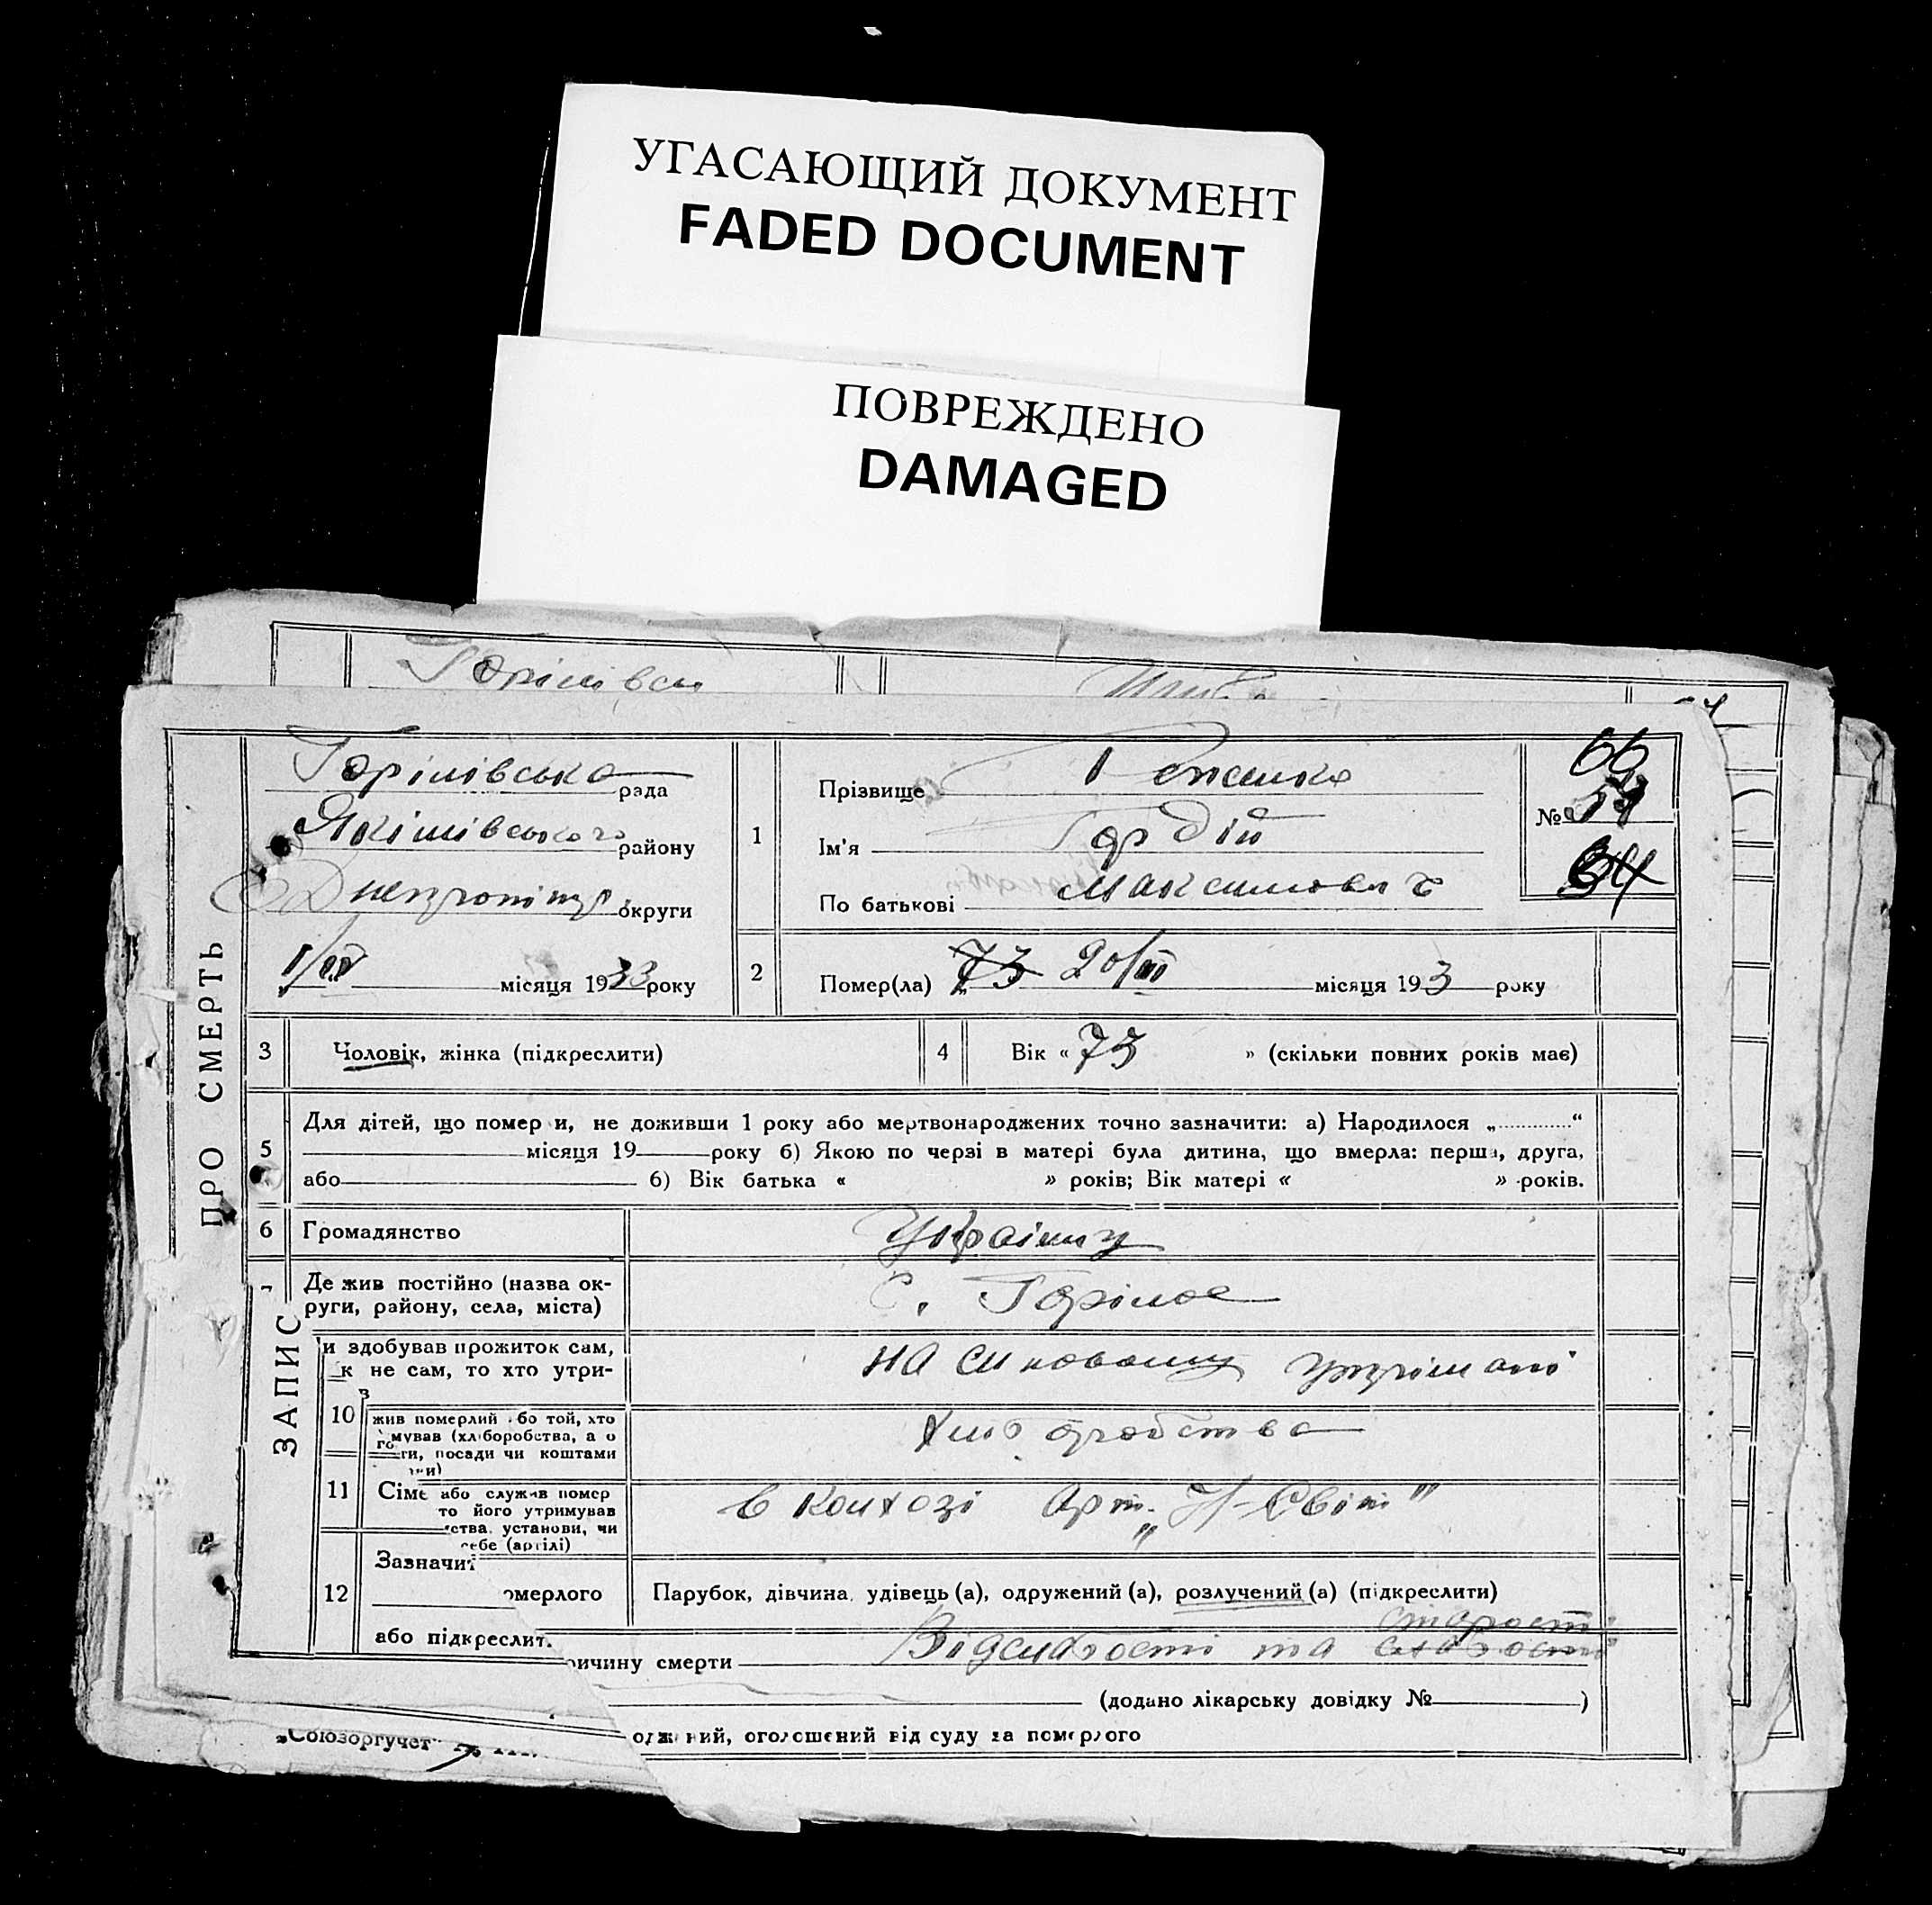 УГАСАЮЩИЙ ДОКУМЕНТ
FADED DOCUMENT
ПОВРЕЖДЕНО
DAMAGED
Горілівська рада
Якімівського району
округи
місяця 1933 року
ПРО СМЕРТЬ
ЗАПИС
1
Прізвище
Ім'я Гордій
По батькові Максимович
№
66
64
2
Помер(ла) „73 20/III місяця 193 3 року
3 Чоловік, жінка (підкреслити)
4 Вік « 73 » (скільки повних років має)
5
Для дітей, що помер и, не доживши 1 року або мертвонароджених точно зазначити: а) Народилося „............“
місяця 19 року б) Якою по черзі в матері була дитина, що вмерла: перша, друга,
або б) Вік батька « » років; Вік матері « » років.
6 Громадянство
Де жив постійно (назва ок-
руги, району, села, міста)
С.
и здобував прожиток сам,
к не сам, то хто утри-
на синовому
10
жив померлий бо той, хто
мував (хліборобства, а о
ги, посади чи коштами
11 Сіме
або служив помер
то його утримував
ства, установи, чи
ебе (артілі)
в колхозі Арт. „Н-Світ"
12
Зазначит
омерлого
Парубок, дівчина, удівець (а), одружений (а), розлучений (а) (підкреслити)
або підкреслит.
старості
ичину смерти Відслабості та слабості
(додано лікарську довідку № )
„Союзоргучет"
ний, оголошений від суду за померлого